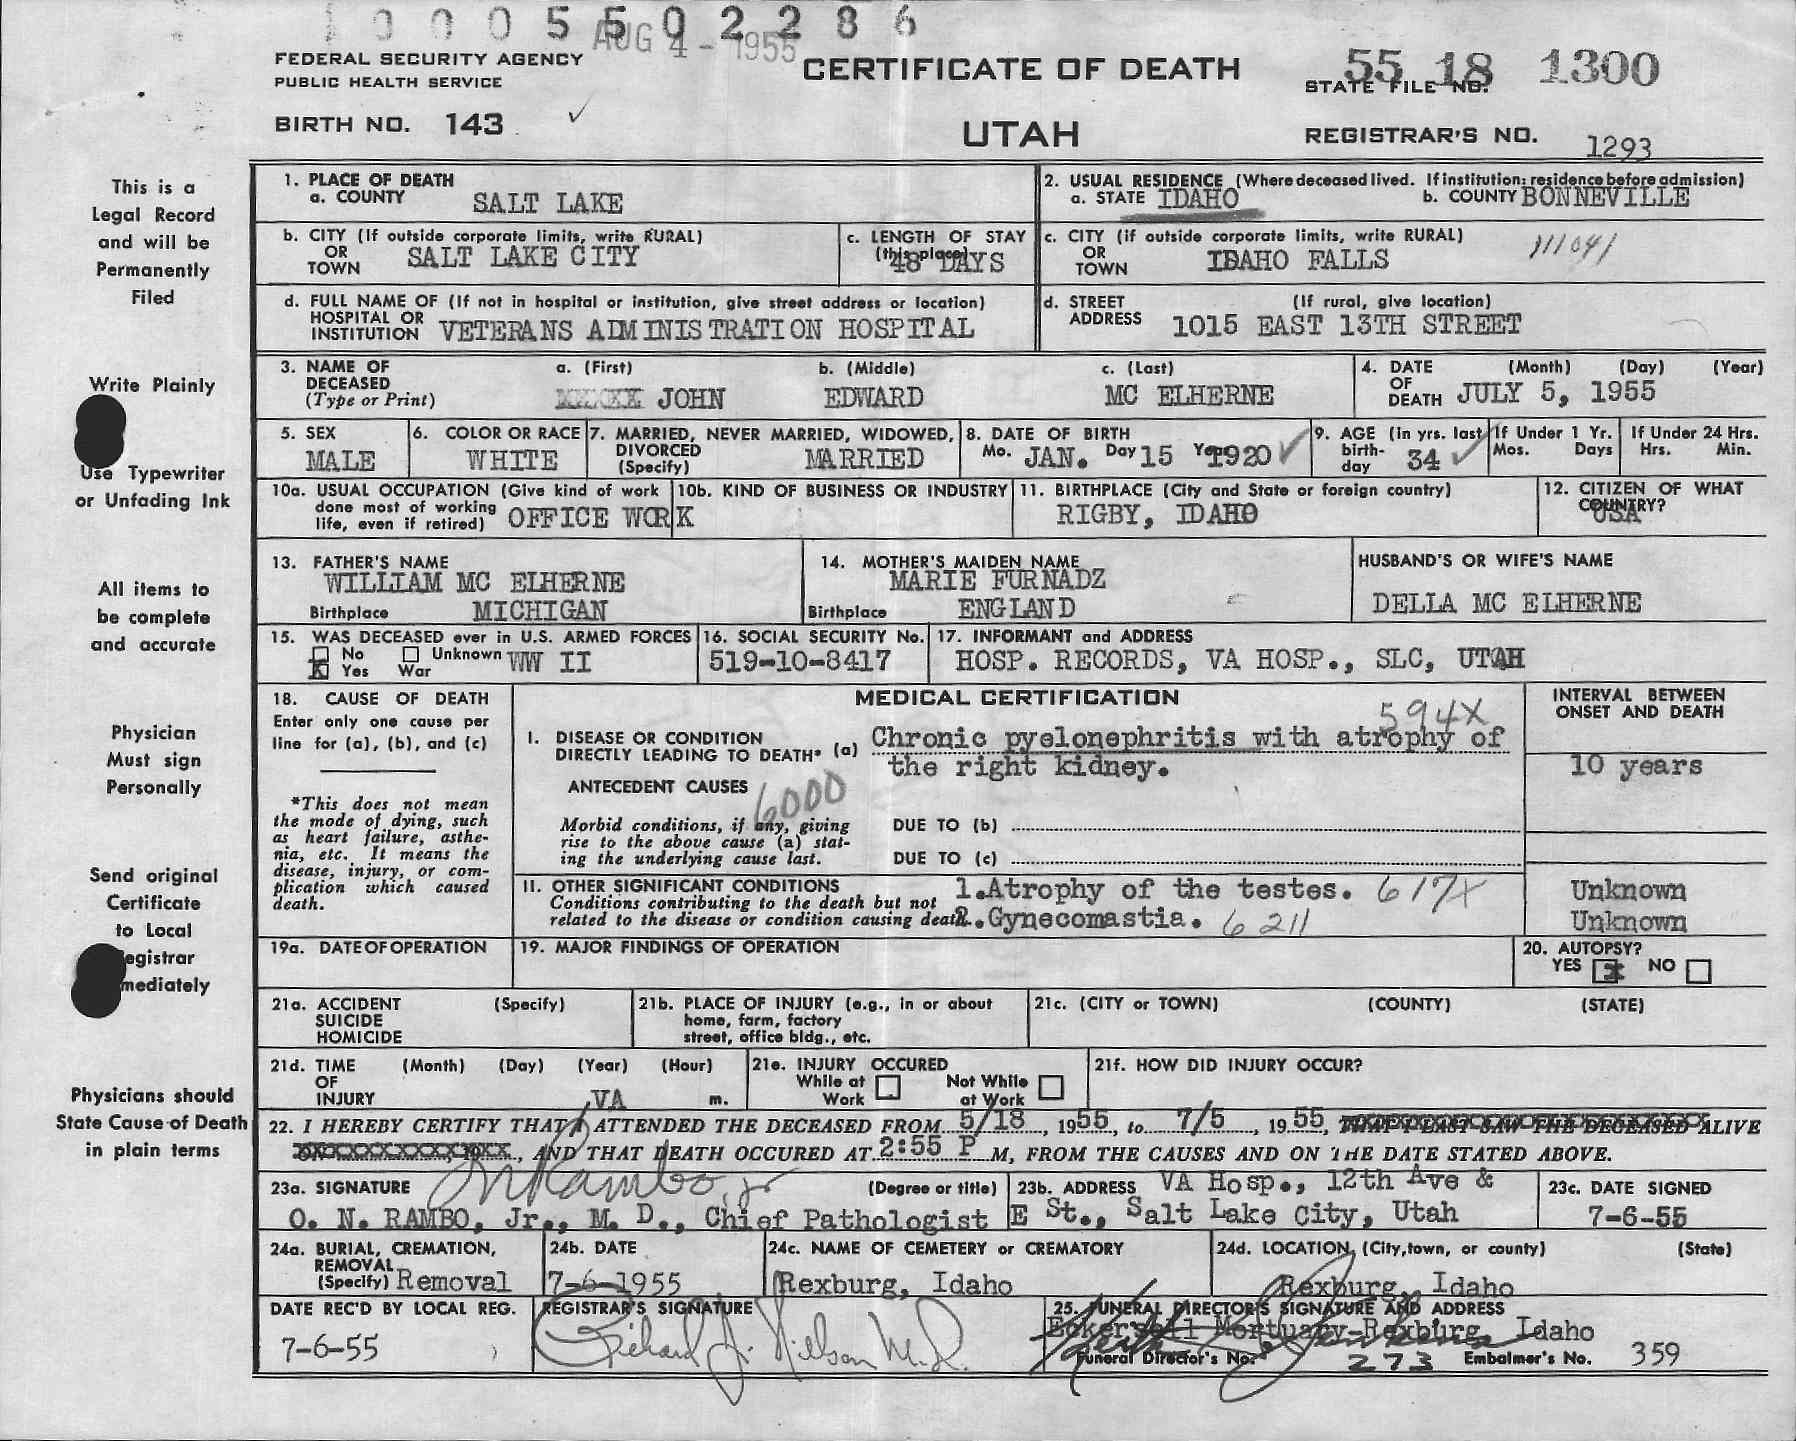 1 0 0 0 5 5 0 2 2 8 6
AUG 4 - 1955
FEDERAL SECURITY AGENCY
PUBLIC HEALTH SERVICE
CERTIFICATE OF DEATH
STATE FILE NO. 55 18 1300
BIRTH NO. 143 ✓
UTAH
REGISTRAR'S NO. 1293
This is a
Legal Record
and will be
Permanently
Filed
Write Plainly
Use Typewriter
or Unfading Ink
All items to
be complete
and accurate
Physician
Must sign
Personally
Send original
Certificate
to Local
egistrar
mediately
Physicians should
State Cause of Death
in plain terms
1. PLACE OF DEATH
a. COUNTY SALT LAKE
2. USUAL RESIDENCE (Where deceased lived. If institution: residence before admission)
a. STATE IDAHO b. COUNTY BONNEVILLE
b. CITY (If outside corporate limits, write RURAL)
OR
TOWN SALT LAKE CITY
c. LENGTH OF STAY
(this place) 48 DAYS
c. CITY (if outside corporate limits, write RURAL)
OR
TOWN IDAHO FALLS
111041
d. FULL NAME OF (If not in hospital or institution, give street address or location)
HOSPITAL OR
INSTITUTION VETERANS ADMINISTRATION HOSPITAL
d. STREET (If rural, give location)
ADDRESS 1015 EAST 13TH STREET
3. NAME OF DECEASED (Type or Print)
a. (First) b. (Middle) c. (Last)
JOHN EDWARD MC ELHERNE
4. DATE OF DEATH (Month) (Day) (Year)
JULY 5, 1955
5. SEX
MALE
6. COLOR OR RACE
WHITE
7. MARRIED, NEVER MARRIED, WIDOWED,
DIVORCED
(Specify) MARRIED
8. DATE OF BIRTH
Mo. JAN. Day 15 Yr. 1920 ✓
9. AGE (in yrs. last
birth-
day 34 ✓
If Under 1 Yr.
Mos. Days
If Under 24 Hrs.
Hrs. Min.
10a. USUAL OCCUPATION (Give kind of work
done most of working
life, even if retired) OFFICE WORK
10b. KIND OF BUSINESS OR INDUSTRY
11. BIRTHPLACE (City and State or foreign country)
RIGBY, IDAHO
12. CITIZEN OF WHAT
COUNTRY?
USA
13. FATHER'S NAME
WILLIAM MC ELHERNE
Birthplace MICHIGAN
14. MOTHER'S MAIDEN NAME
MARIE FURNADZ
Birthplace ENGLAND
HUSBAND'S OR WIFE'S NAME
DELLA MC ELHERNE
15. WAS DECEASED ever in U.S. ARMED FORCES
No Unknown WW II
X Yes War
16. SOCIAL SECURITY No.
519-10-8417
17. INFORMANT and ADDRESS
HOSP. RECORDS, VA HOSP., SLC, UTAH
18. CAUSE OF DEATH
Enter only one cause per
line for (a), (b), and (c)
*This does not mean
the mode of dying, such
as heart failure, asthe-
nia, etc. It means the
disease, injury, or com-
plication which caused
death.
MEDICAL CERTIFICATION
594X
I. DISEASE OR CONDITION
DIRECTLY LEADING TO DEATH* (a) Chronic pyelonephritis with atrophy of
the right kidney.
ANTECEDENT CAUSES
6000
Morbid conditions, if any, giving
rise to the above cause (a) stat-
ing the underlying cause last.
DUE TO (b)
DUE TO (c)
INTERVAL BETWEEN
ONSET AND DEATH
10 years
II. OTHER SIGNIFICANT CONDITIONS
Conditions contributing to the death but not
related to the disease or condition causing death.
1.Atrophy of the testes. 617X
2.Gynecomastia. 6211
Unknown
Unknown
19a. DATE OF OPERATION
19. MAJOR FINDINGS OF OPERATION
20. AUTOPSY?
YES X NO
21a. ACCIDENT (Specify)
SUICIDE
HOMICIDE
21b. PLACE OF INJURY (e.g., in or about
home, farm, factory
street, office bldg., etc.
21c. (CITY or TOWN) (COUNTY) (STATE)
21d. TIME (Month) (Day) (Year) (Hour)
OF
INJURY m.
21e. INJURY OCCURED
While at Work
Not While at Work
21f. HOW DID INJURY OCCUR?
VA
22. I HEREBY CERTIFY THAT I ATTENDED THE DECEASED FROM 5/18, 1955, to 7/5, 1955, THAT I LAST SAW THE DECEASED ALIVE
ON , 19 , AND THAT DEATH OCCURED AT 2:55 P M, FROM THE CAUSES AND ON THE DATE STATED ABOVE.
23a. SIGNATURE ON Rambo, Jr (Degree or title)
O. N. RAMBO, Jr., M. D., Chief Pathologist
23b. ADDRESS VA Hosp., 12th Ave &
E St., Salt Lake City, Utah
23c. DATE SIGNED
7-6-55
24a. BURIAL, CREMATION,
REMOVAL
(Specify) Removal
24b. DATE
7-6-1955
24c. NAME OF CEMETERY or CREMATORY
Rexburg, Idaho
24d. LOCATION, (City, town, or county) (State)
Rexburg, Idaho
DATE REC'D BY LOCAL REG.
7-6-55
REGISTRAR'S SIGNATURE
Richard J. Nielson M.D.
25. FUNERAL DIRECTOR'S SIGNATURE AND ADDRESS
Eckersell Mortuary-Rexburg, Idaho
Funeral Director's No. 273 Embalmer's No. 359